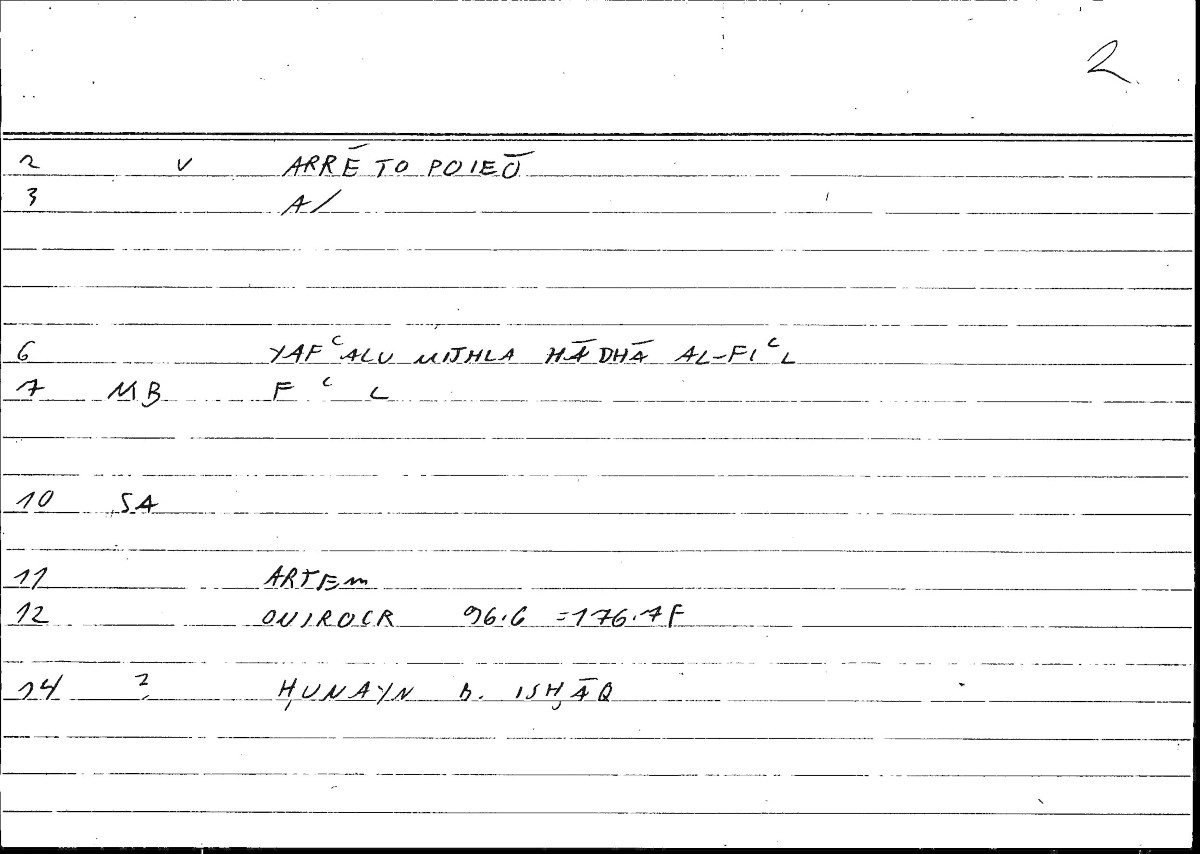 2
2 V ARRĒTOPOIEŌ
3 A/
6 YAFᶜALU MITHLA HĀDHĀ AL-FIᶜL
7 MB F ᶜ L
10 SA
11 ARTEM
12 ONIROCR 96.6 =176.7F
14 ? ḤUNAYN b. ISḤĀQ